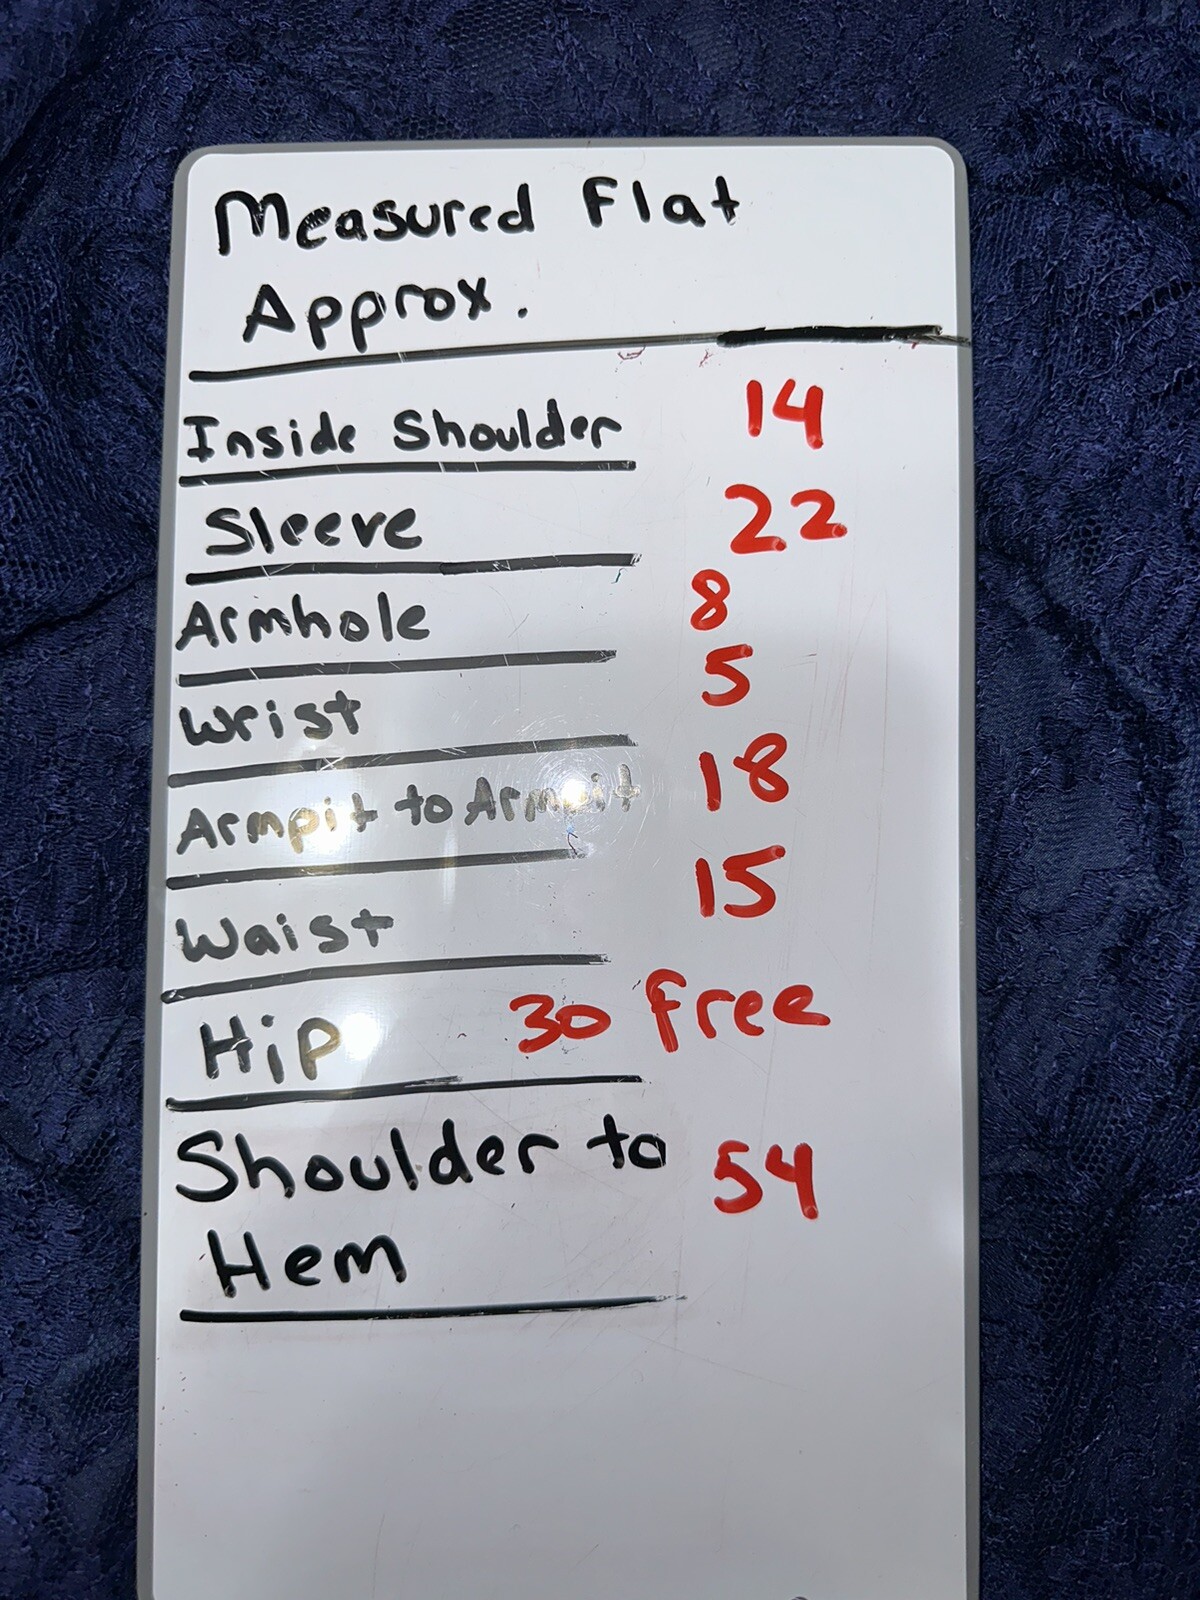 Measured Flat
Approx.
Inside Shoulder 14
Sleeve 22
Armhole 8
Wrist 5
Armpit to Armpit 18
Waist 15
Hip 30 free
Shoulder to 54
Hem